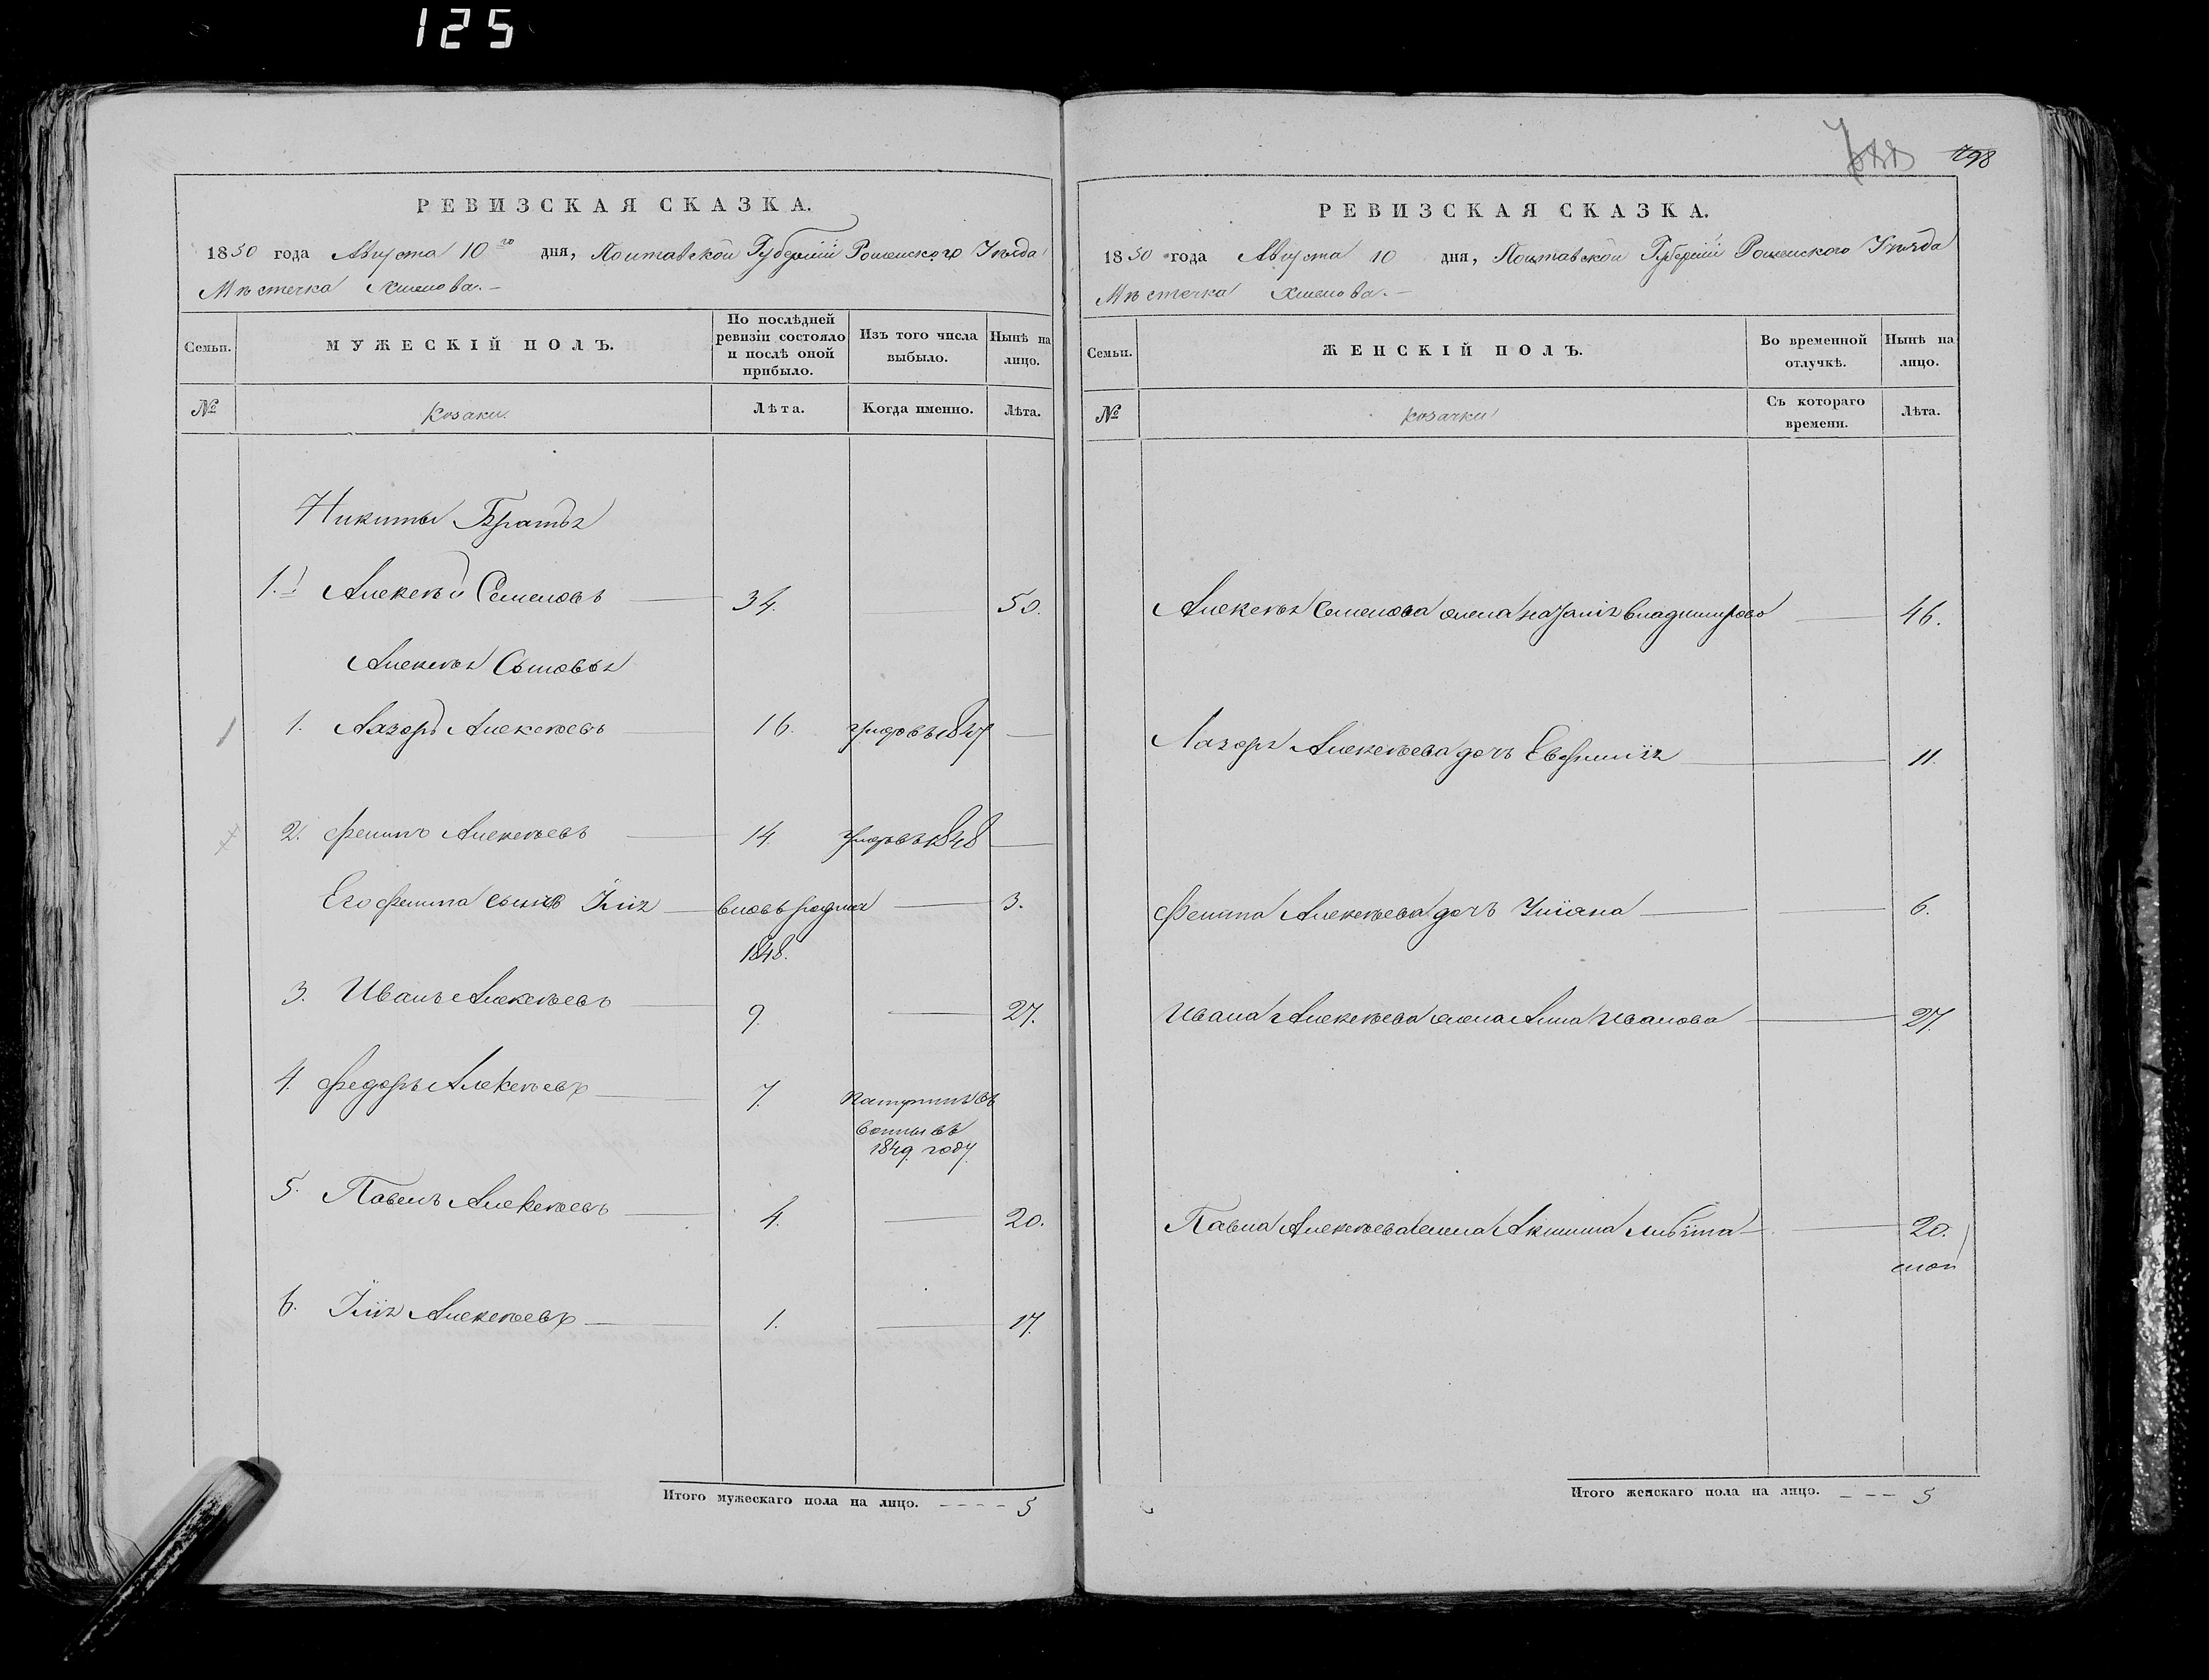 125
798
РЕВИЗСКАЯ СКАЗКА.
1850 года Августа 10го дня, Полтавской Губерніи Роменского Уѣзда
Мѣстечка Хмелова.
Семьи.
МУЖЕСКІЙ ПОЛЪ.
По послѣдней ревизіи состояло и послѣ оной прибыло.
Изъ того числа выбыло.
Нынѣ на лицо.
№
Козаки.
Лѣта.
Когда именно.
Лѣта.
Никиты Братъ
1. Алексѣй Семеновъ 34. 50.
Алексѣя Сыновья
1. Лазорь Алексѣевъ 16. 1847
2. Филипъ Алексѣевъ 14. 1848
Его Филипа сынъ Илія вновь родился 3.
1848.
3. Иванъ Алексѣевъ 9. 27.
4. Федоръ Алексѣевъ 7.
1849. году
5. Павелъ Алексѣевъ 4. 20.
6. Илія Алексѣевъ 1. 17.
Итого мужескаго пола на лицо. 5
РЕВИЗСКАЯ СКАЗКА.
1850 года Августа 10 дня, Полтавской Губерніи Роменского Уѣзда
Мѣстечка Хмелова.
Семьи.
ЖЕНСКІЙ ПОЛЪ.
Во временной отлучкѣ.
Нынѣ на лицо.
№
козачки
Съ котораго времени.
Лѣта.
Алексѣя Семенова жена Наталія Владимирова 46.
Лазоря Алексѣева дочь Евфимія 11.
Филипа Алексѣева дочь Уліяна 6.
Ивана Алексѣева жена Анна Иванова 27.
Павла Алексѣева жена Акилина 20.
Итого женскаго пола на лицо. 5